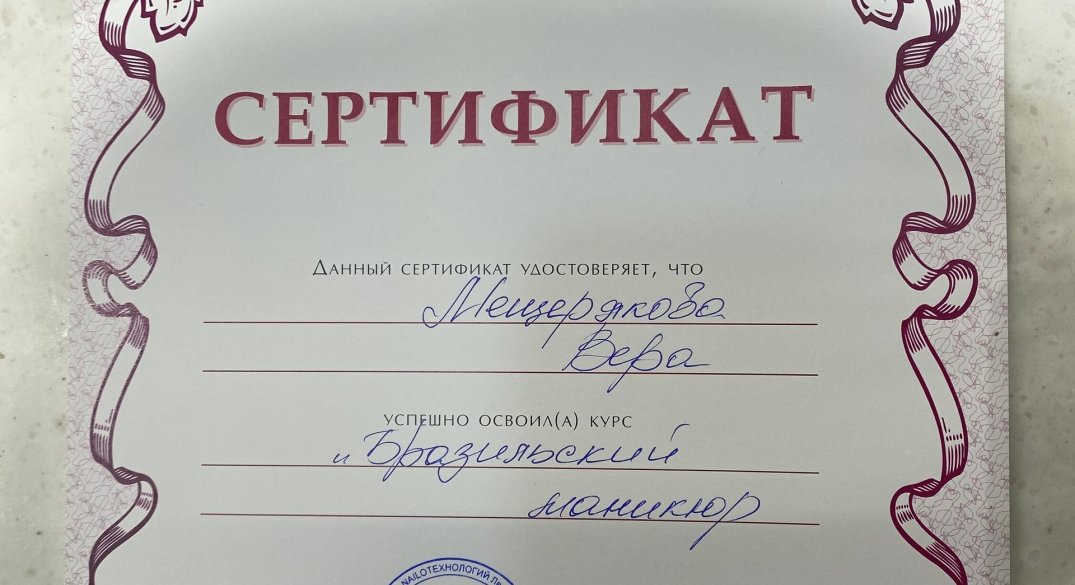 СЕРТИФИКАТ
Данный сертификат удостоверяет, что
Мещерякова
Вера
успешно освоил(а) курс
"Бразильский
маникюр
NAILОТЕХНОЛОГИЙ